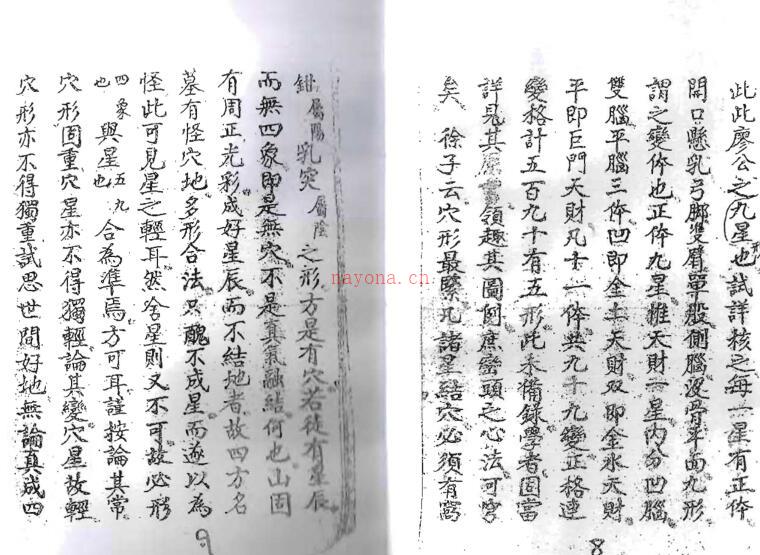 此此廖公之九星也試詳核之每一星有正体
開口懸乳弓脚雙臂單股側腦沒骨平面九形
謂之變体也正体九星惟天財一星内分凹腦
雙腦平腦三体凹即金土天財双即金水天財
平即巨門天財凡十一体共九十九變正格連
變格計五百九十有五形此未備録學者固當
詳見其領趣其圖倒庶巒頭之心法可窮
矣 徐子云穴形最緊凡諸星結穴必須有窩
鉗屬陽乳突屬陰之形方是有穴若徒有星辰
而無四象即是無穴不是真氣融結何也山固
有周正光彩成好星辰而不結地者故四方名
墓有怪穴地多形合法只醜不成星而遂以為
怪此可見星之輕耳然舍星則又不可故必形
四象也與星五九也合為準焉方可耳謹按論其常
穴形固重穴星亦不得獨輕論其變穴星故輕
穴形亦不得獨重試思世間好地無論真成四
8
9
nayona.cn